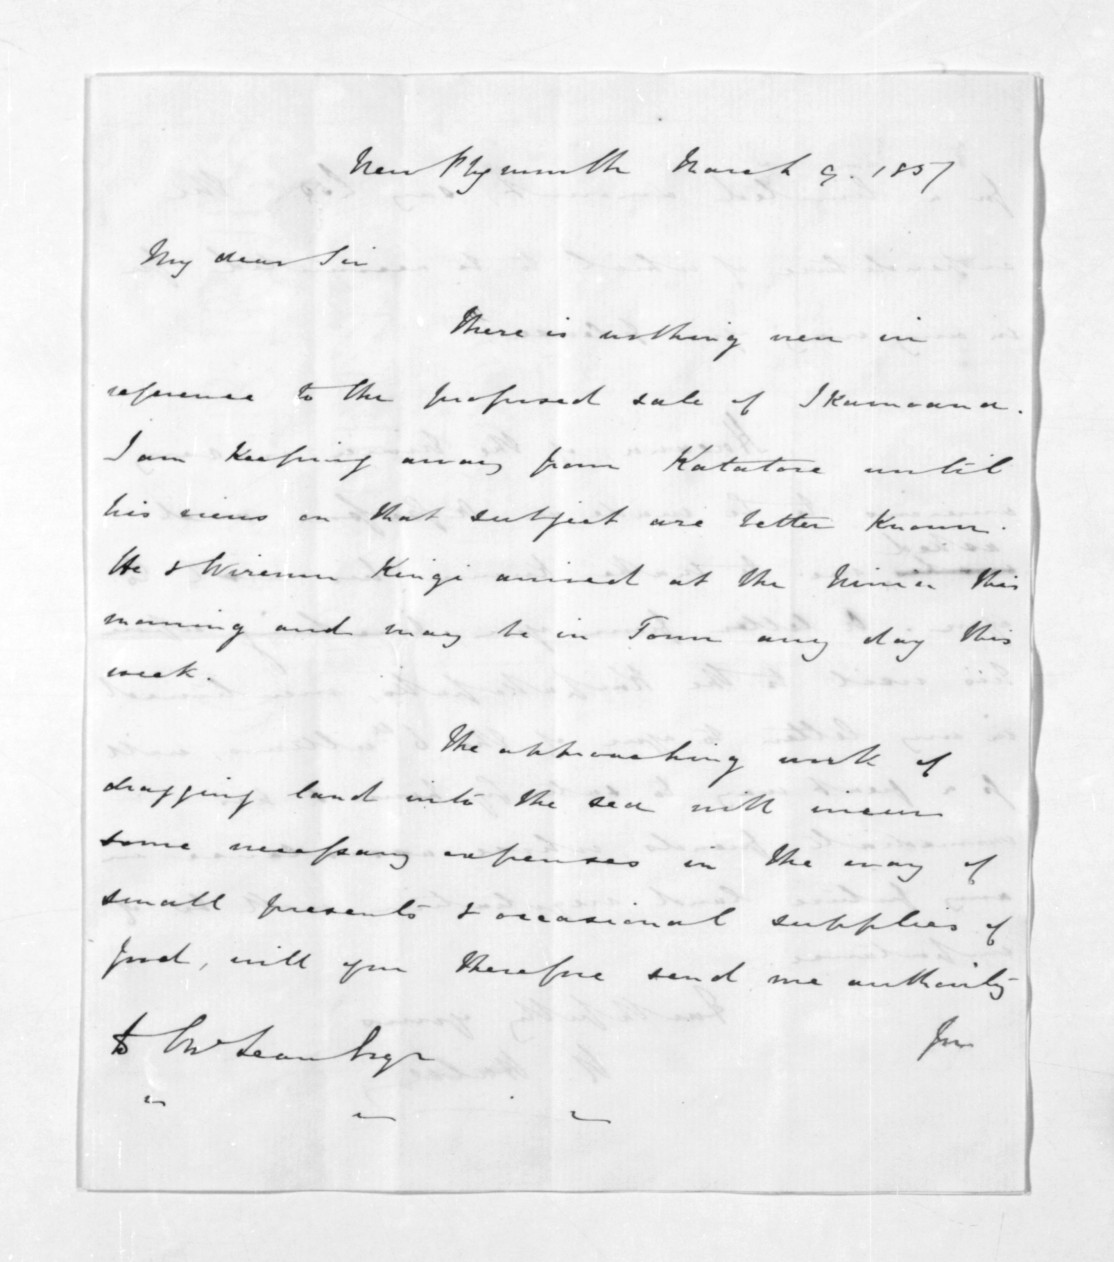 New Plymouth March 9. 1857
My dear Sir
There is nothing new in
reference to the proposed sale of Ikamoana.
I am keeping away from Katatore until
his views on that subject are better known.
He & Wiremu Kingi arrived at the this
morning and may be in Town any day this
week.
The approaching work of
dragging land into the sea will incur
some necessary expenses in the way of
small presents & occasional supplies of
food, will you therefore send me authority
to McLean Esqr
for